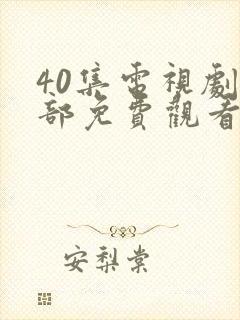 40集電視劇
部免費觀看
安梨棠